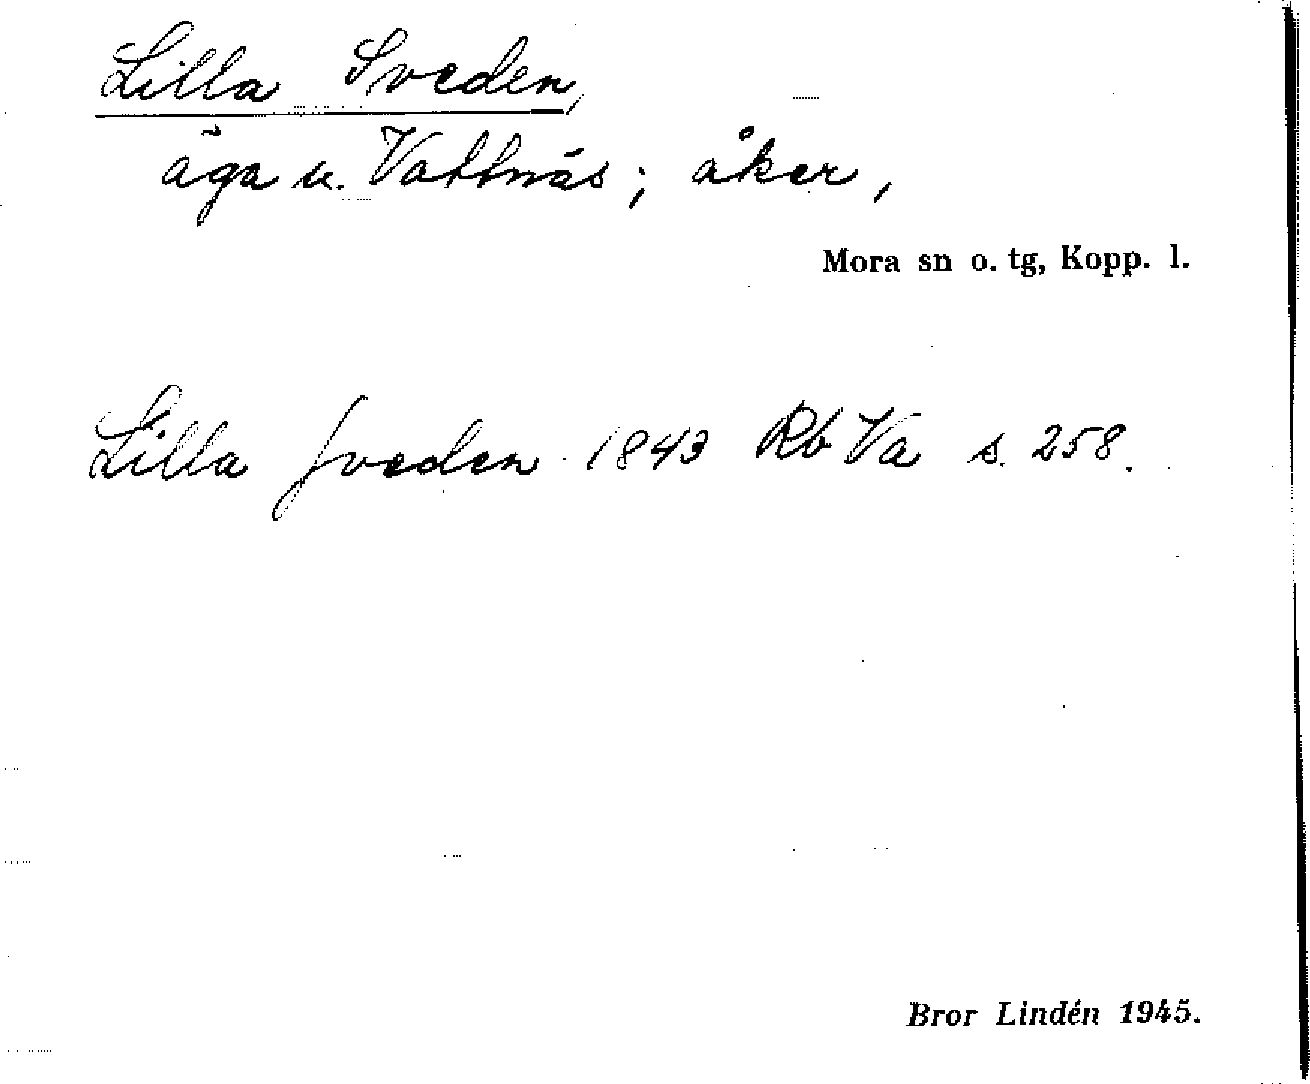 Lilla Sveden,
äga u. Vattnäs; åker,
Mora sn o. tg, Kopp. l.
Lilla Sveden 1843 Rb Va s. 258.
Bror Lindén 1945.